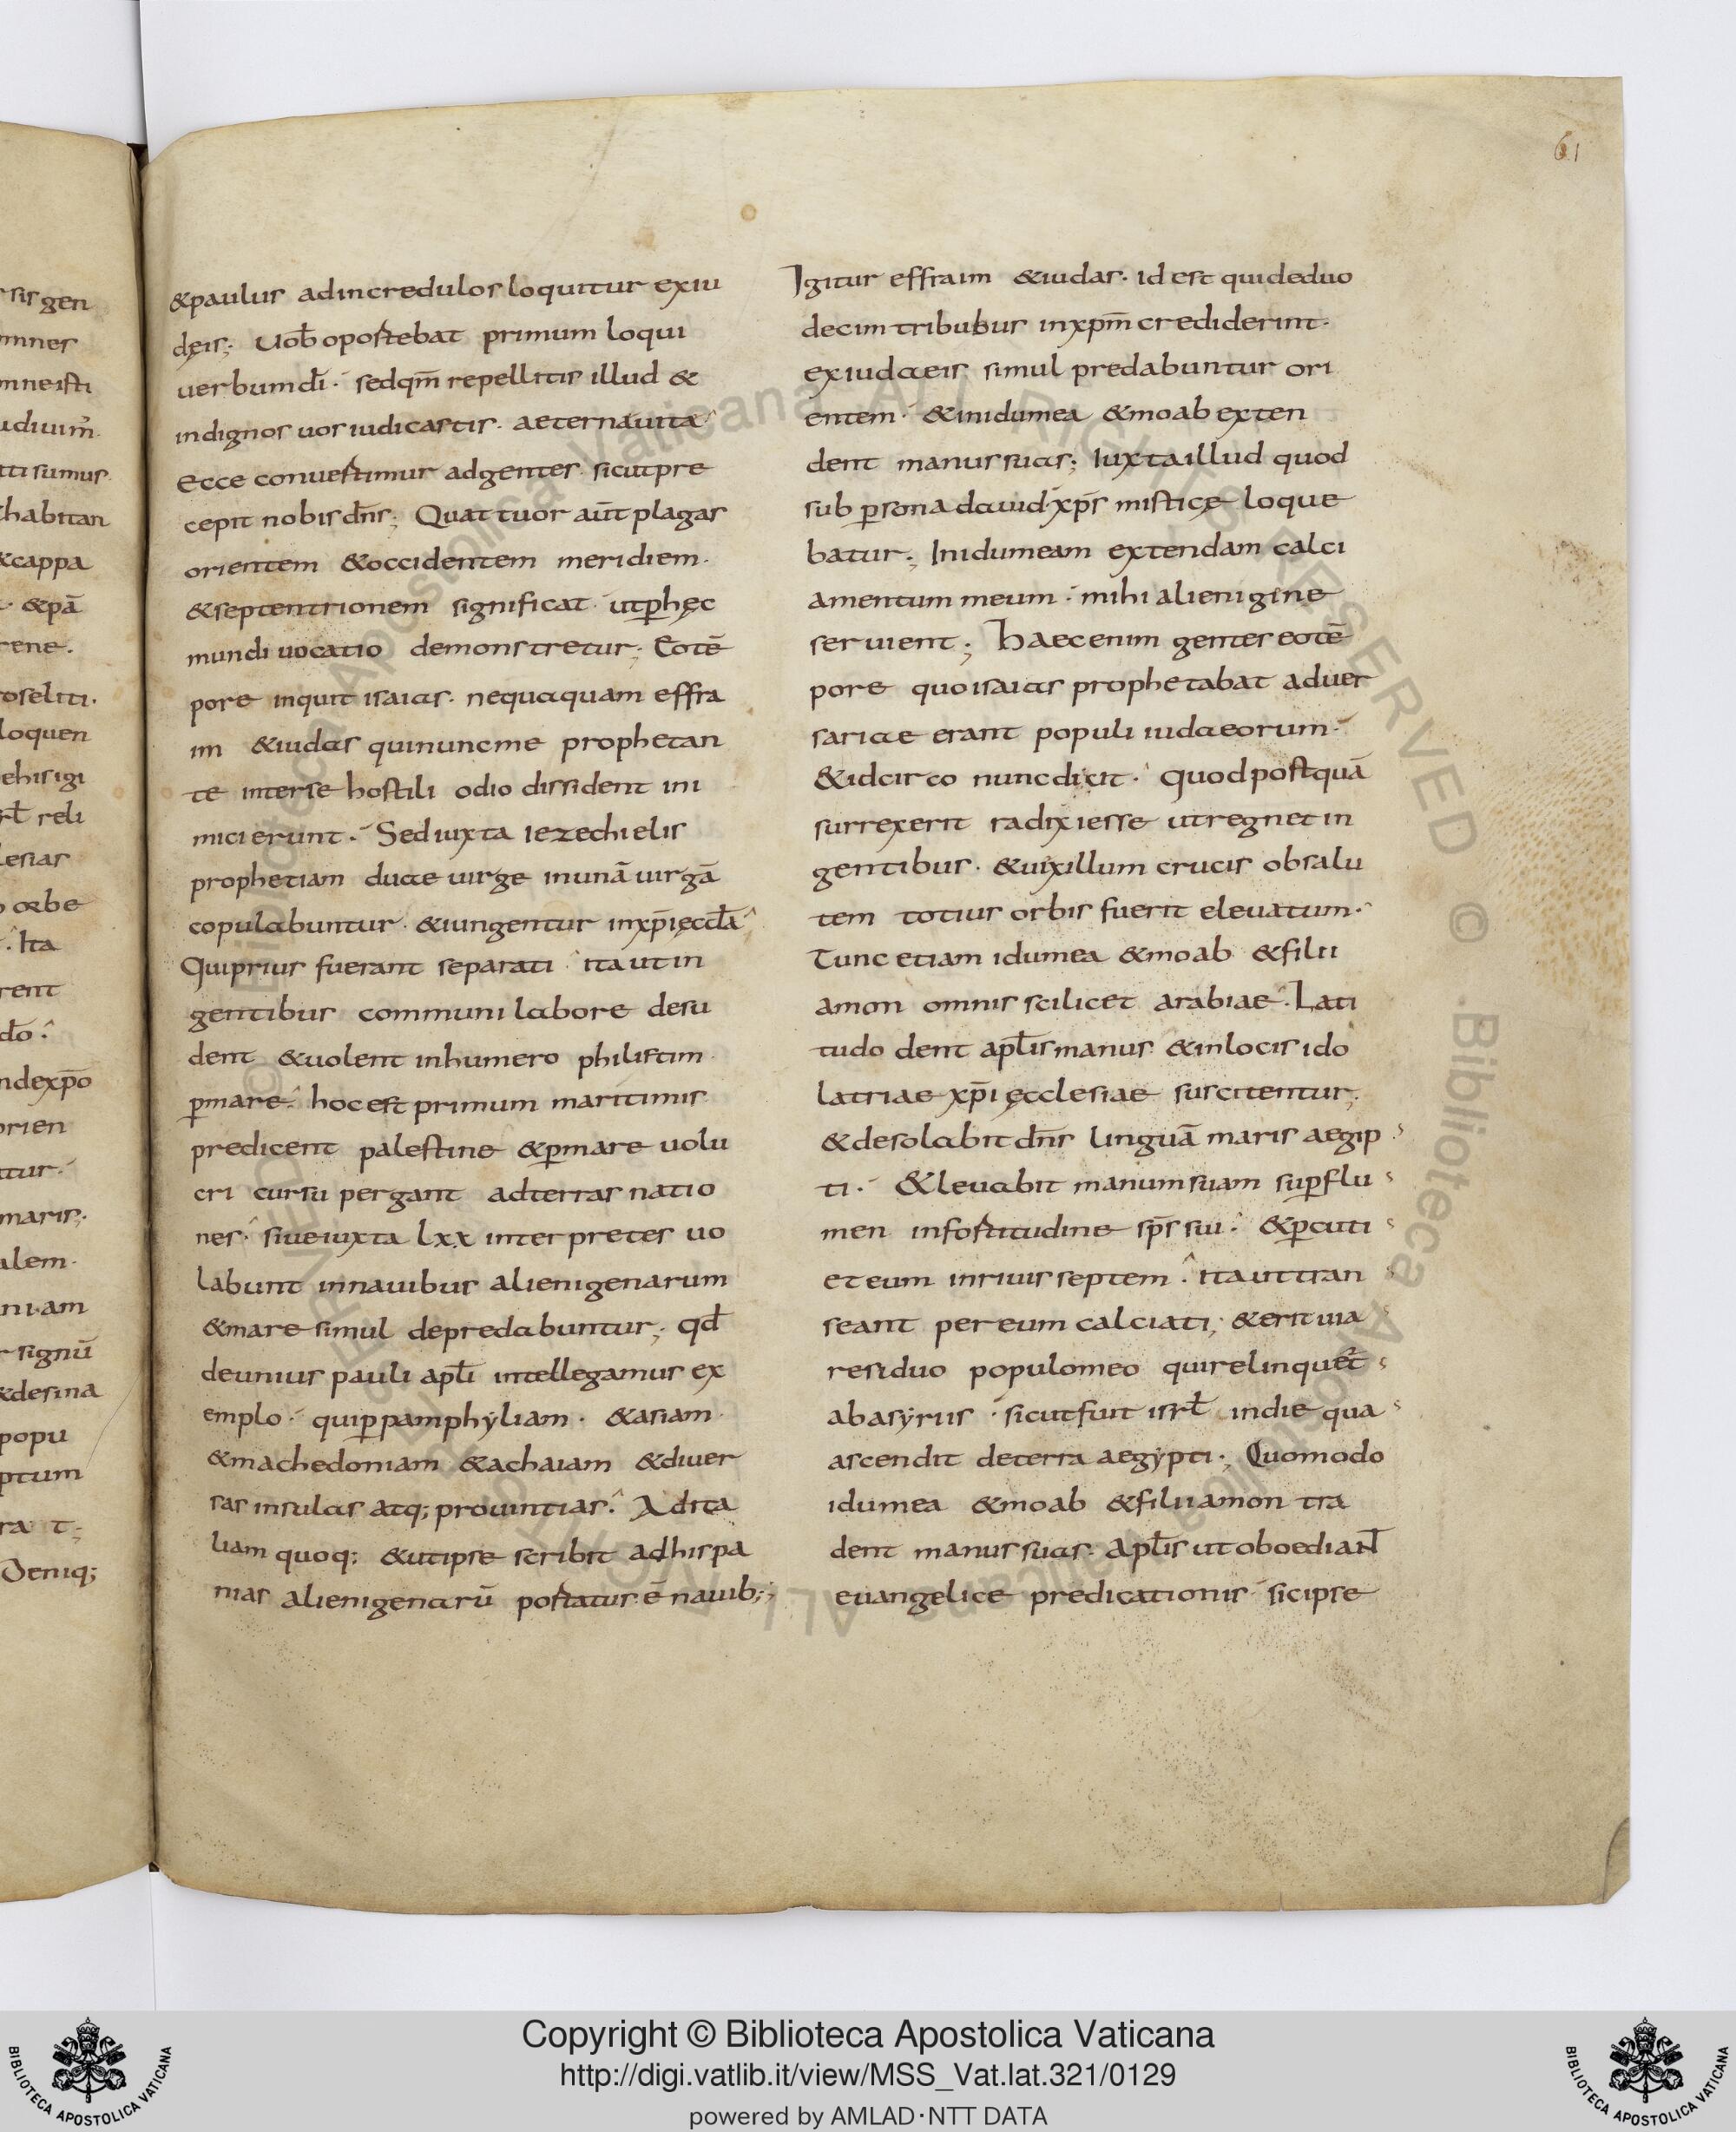 61
&paulus adincredulos loquitur exiu
dęis; Uob̄ oportebat primum loqui
uerbum dī· sedqm̄ repellitis illud &
indignos uos iudicastis· aeterna uita
Ecce conuertimur adgentes sicutpre
cepit nobis dn̄s; Quattuor aūt plagas
orientem &occidentem meridiem·
&septentrionem significat· utꝑhęc
mundi uocatio demonstretur; Eotē
pore inquit isaias· nequaquam effra
im &iudas quinuncme prophetan
te interse hostili odio dissident ini
mici erunt· Sediuxta iezechielis
prophetiam duae uirge inunā uirgā
copulabuntur· &iungentur inxp̄i ęccłā
Quiprius fuerant separati· itautin
gentibus communi labore desu
dent &uolent inhumero philistim·
ꝑmare· hoc est primum maritimis
predicent palestine &ꝑmare uolu
cri cursu pergant adterras natio
nes· siueiuxta lxx interpretes uo
labunt innauibus alienigenarum
&mare simul depredabuntur; qđ
deunius pauli apłi intellegamus ex
emplo· quiꝑpamphyliam· &asiam·
&machedoniam &achaiam &diuer
sas insulas atq; prouintias· Adita
liam quoq; &utipse scribit adhispa
nias alienigenarū portatus ē nauib;
Igitur effraim &iudas· id est quideduo
decim tribubus inxpm̄ crediderint·
exiudaeis simul predabuntur ori
entem· &inidumea &moab exten
dent manus suas; Iuxtaillud quod
sub ꝑsona dauid xp̄s misticę loque
batur; Inidumeam extendam calci
amentum meum· mihi alienigine
seruient; Haecenim gentes eotē
pore quoisaias prophetabat aduer
sariae erant populi iudaeorum·
&idcirco nuncdicit· quodpostquā
surrexerit radix iesse utregnet in
gentibus· &uixillum crucis obsalu
tem totius orbis fuerit eleuatum·
Tunc etiam idumea &moab &filii
amon omnis scilicet arabiae· Lati
tudo dent apłis manus &inlocis ido
latriae xp̄i ęcclesiae suscitentur;
&desolabit dn̄s linguā maris aegip
ti· &leuabit manum suam suꝑflu
men infortitudine sp̄s sui· &ꝑcuti
et eum inriuis septem· itauttran
seant per eum calciati; &erit uia
residuo populomeo quirelinquet̄
abasyriis· sicutfuit isrł indie qua
ascendit deterra aegypti; Quomodo
idumea &moab &filii amon tra
dent manus suas· apłis ut oboediant̄
euangelice predicationis· sicipse
Copyright © Biblioteca Apostolica Vaticana
http://digi.vatlib.it/view/MSS_Vat.lat.321/0129
powered by AMLAD·NTT DATA
BIBLIOTECA APOSTOLICA VATICANA
BIBLIOTECA APOSTOLICA VATICANA